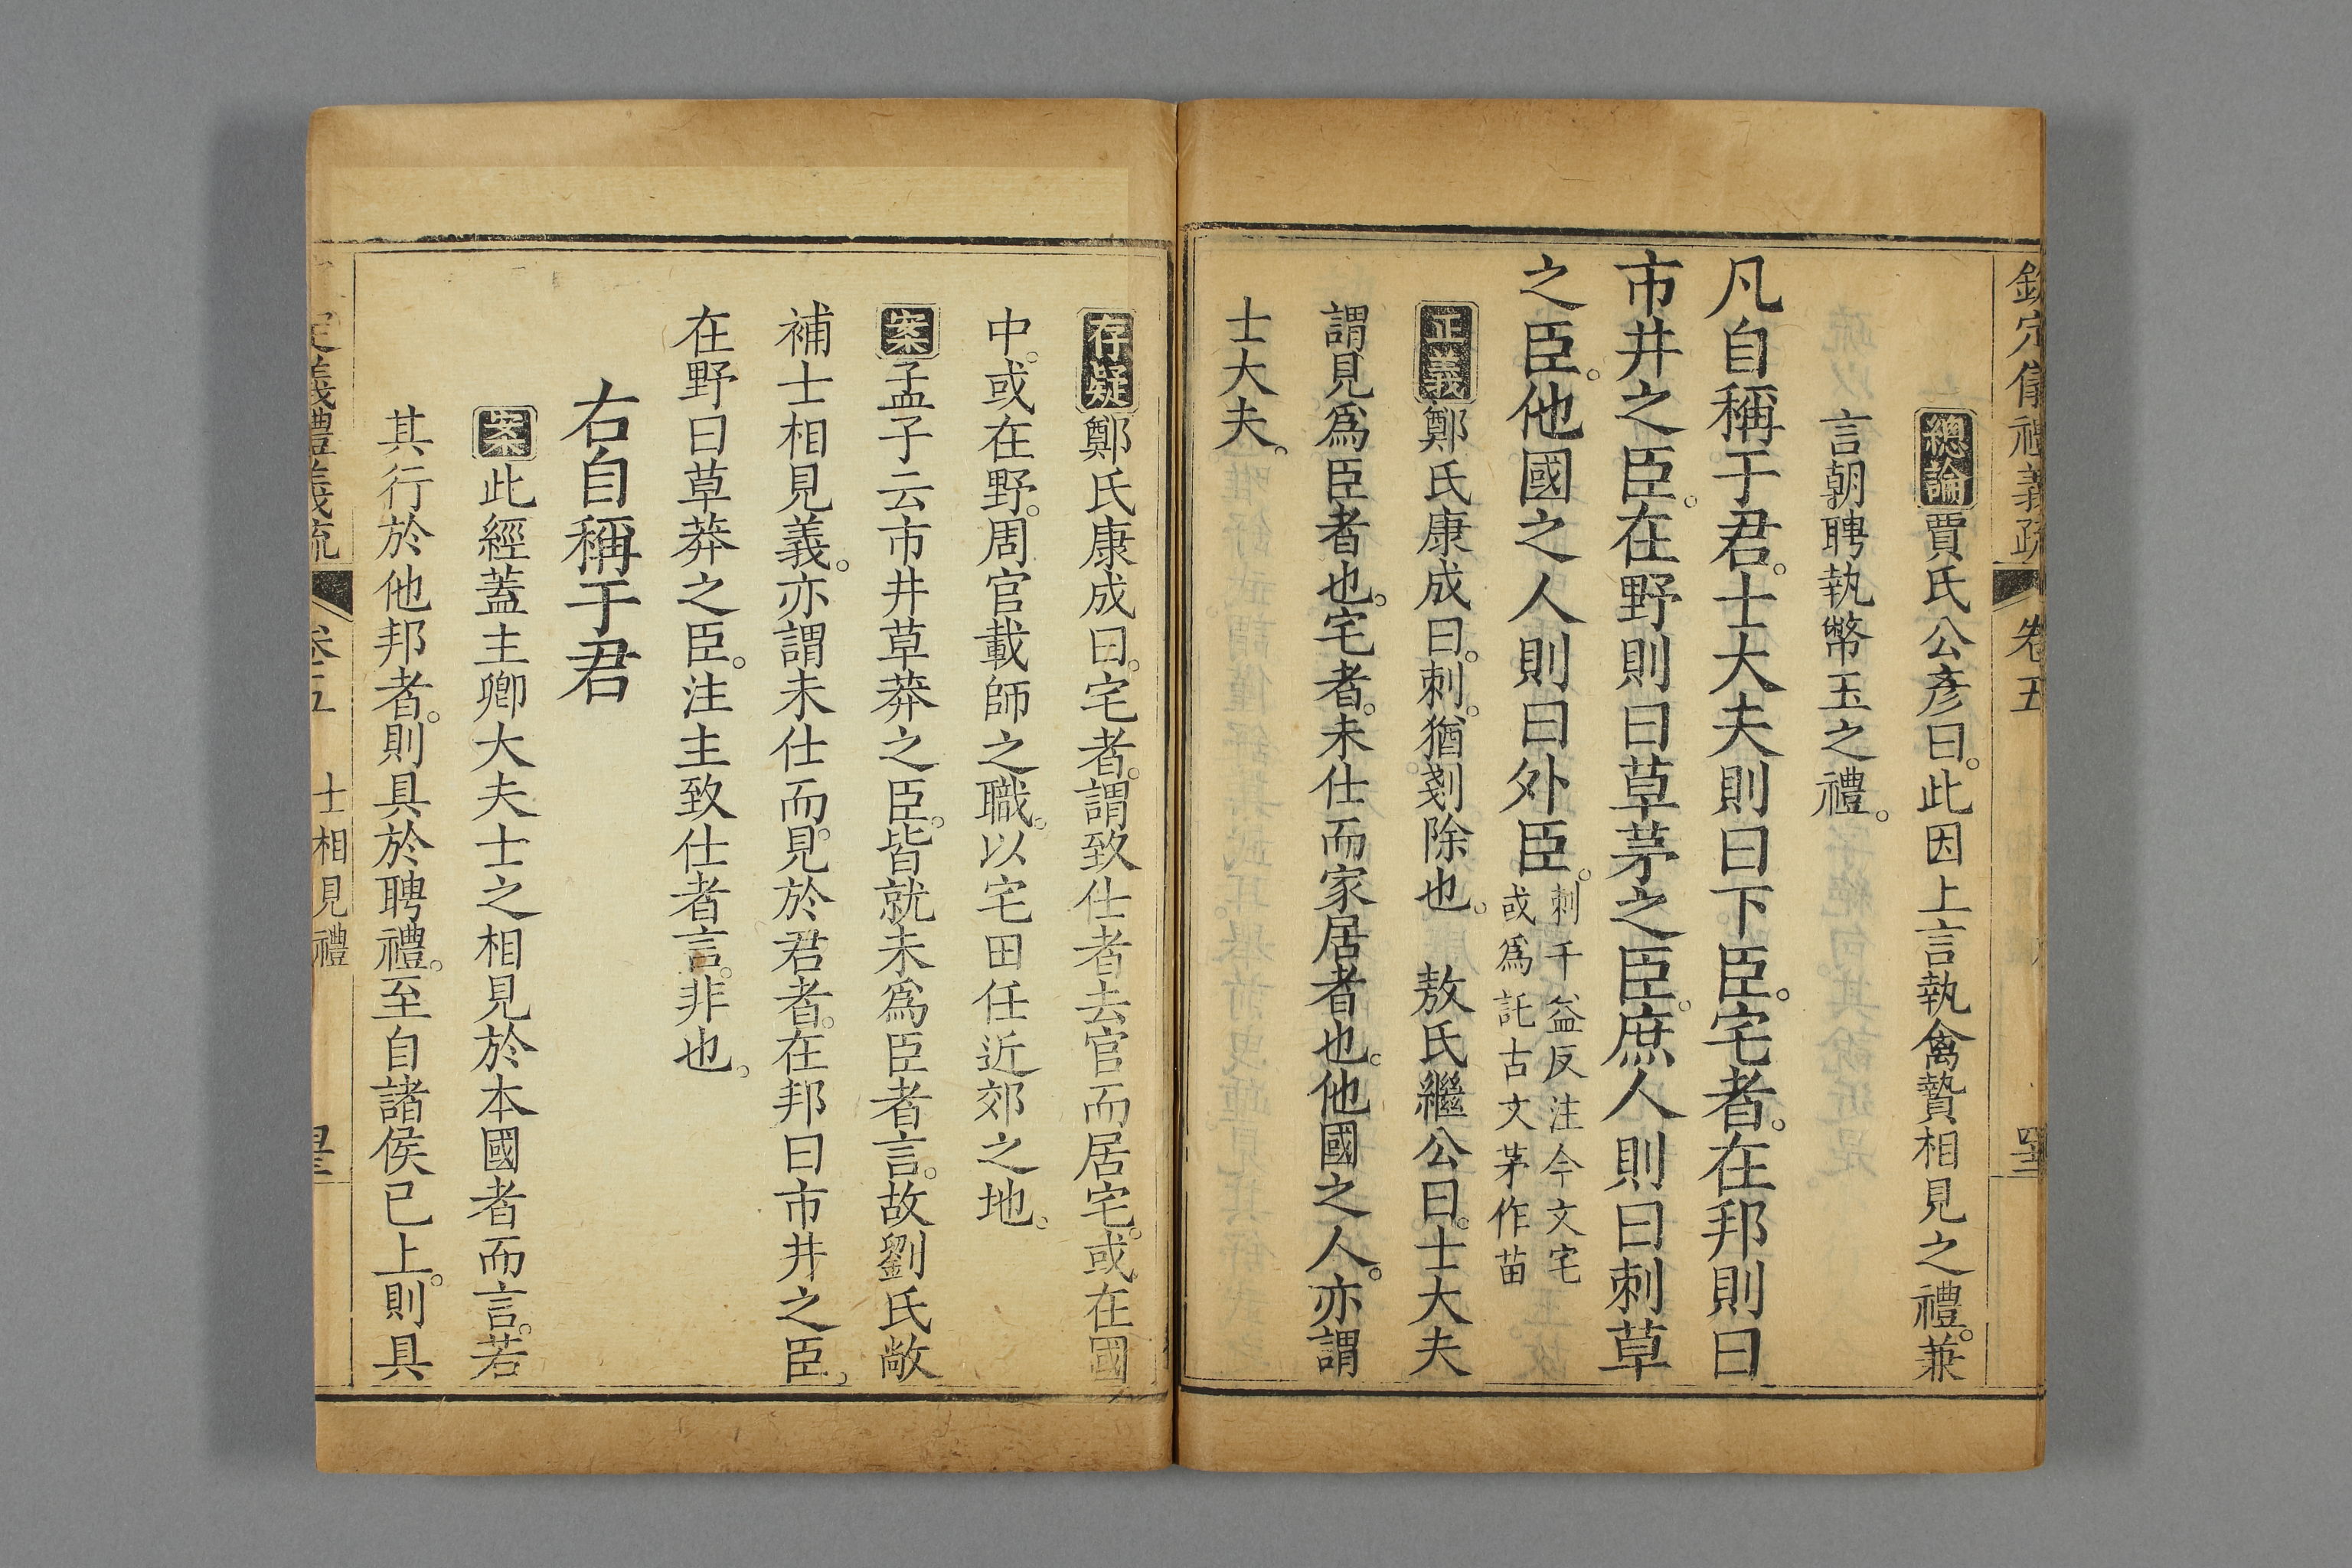 欽定儀禮義疏 卷五
總論賈氏公彥曰。此因上言執禽贄相見之禮。兼
言朝聘執幣玉之禮。
凡自稱于君。士大夫則曰下臣。宅者。在邦則曰
市井之臣。在野則曰草茅之臣。庶人則曰刺草
之臣。他國之人則曰外臣。刺千益反注今文宅
或爲託古文茅作苗
正義鄭氏康成曰。刺。猶剗除也。 敖氏繼公曰。士大夫
謂見爲臣者也。宅者。未仕而家居者也。他國之人。亦謂
士大夫。
存疑鄭氏康成曰。宅者。謂致仕者去官而居宅。或在國
中。或在野。周官載師之職。以宅田任近郊之地。
案孟子云市井草莽之臣。皆就未爲臣者言。故劉氏敞
補士相見義。亦謂未仕而見於君者。在邦曰市井之臣。
在野曰草莽之臣。注主致仕者言。非也。
右自稱于君
案此經蓋主卿大夫士之相見於本國者而言。若
其行於他邦者。則具於聘禮。至自諸侯已上。則具
定義禮義疏 卷五 士相見禮